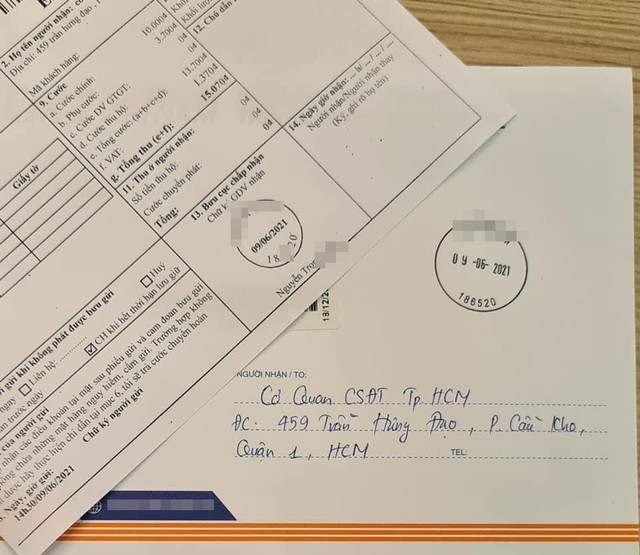 2. Họ tên người nhận: cơ
Địa chỉ: 459 trần hưng đạo,
Mã khách hàng:
9. Cước
a. Cước chính: 10.000đ
b. Phụ cước: 3.700đ
c. Cước DV GTGT: 0đ
d. Cước thu hộ: 0đ
e. Tổng cước: (a+b+c+d) 13.700đ
f. VAT: 1.370đ
g. Tổng thu (e+f): 15.070đ
11. Thu ở người nhận:
Số tiền thu hộ: 0đ
Cước chuyển phát: 0đ
Tổng: 0đ
Khối lượng
12. Chỉ dẫn
13. Bưu cục chấp nhận
Chữ ký GDV nhận
09/06/2021
18 20
Nguyễn Trọng
14. Ngày giờ nhận: ... h/ ... / ... / ...
Người nhận/Người nhận thay
(Ký, ghi rõ họ tên)
Giấy tờ
gửi khi không phát được bưu gửi
Huỷ
ngay
CH khi hết thời hạn lưu giữ
Liên hệ:
trước ngày
của người gửi
nhận các điều khoản tại mặt sau phiếu gửi và cam đoan bưu gửi
không chứa những mặt hàng nguy hiểm, cấm gửi. Trường hợp không
được hãy thực hiện chỉ dẫn tại mục 6, tôi sẽ trả cước chuyển hoàn
Chữ ký người gửi
Ngày, giờ gửi:
14h30/09/06/2021
09-06-2021
186520
NGƯỜI NHẬN / TO:
Cơ Quan CSĐT Tp HCM
ĐC: 459 Trần Hưng Đạo, P Cầu Kho,
Quận 1, HCM
TEL: